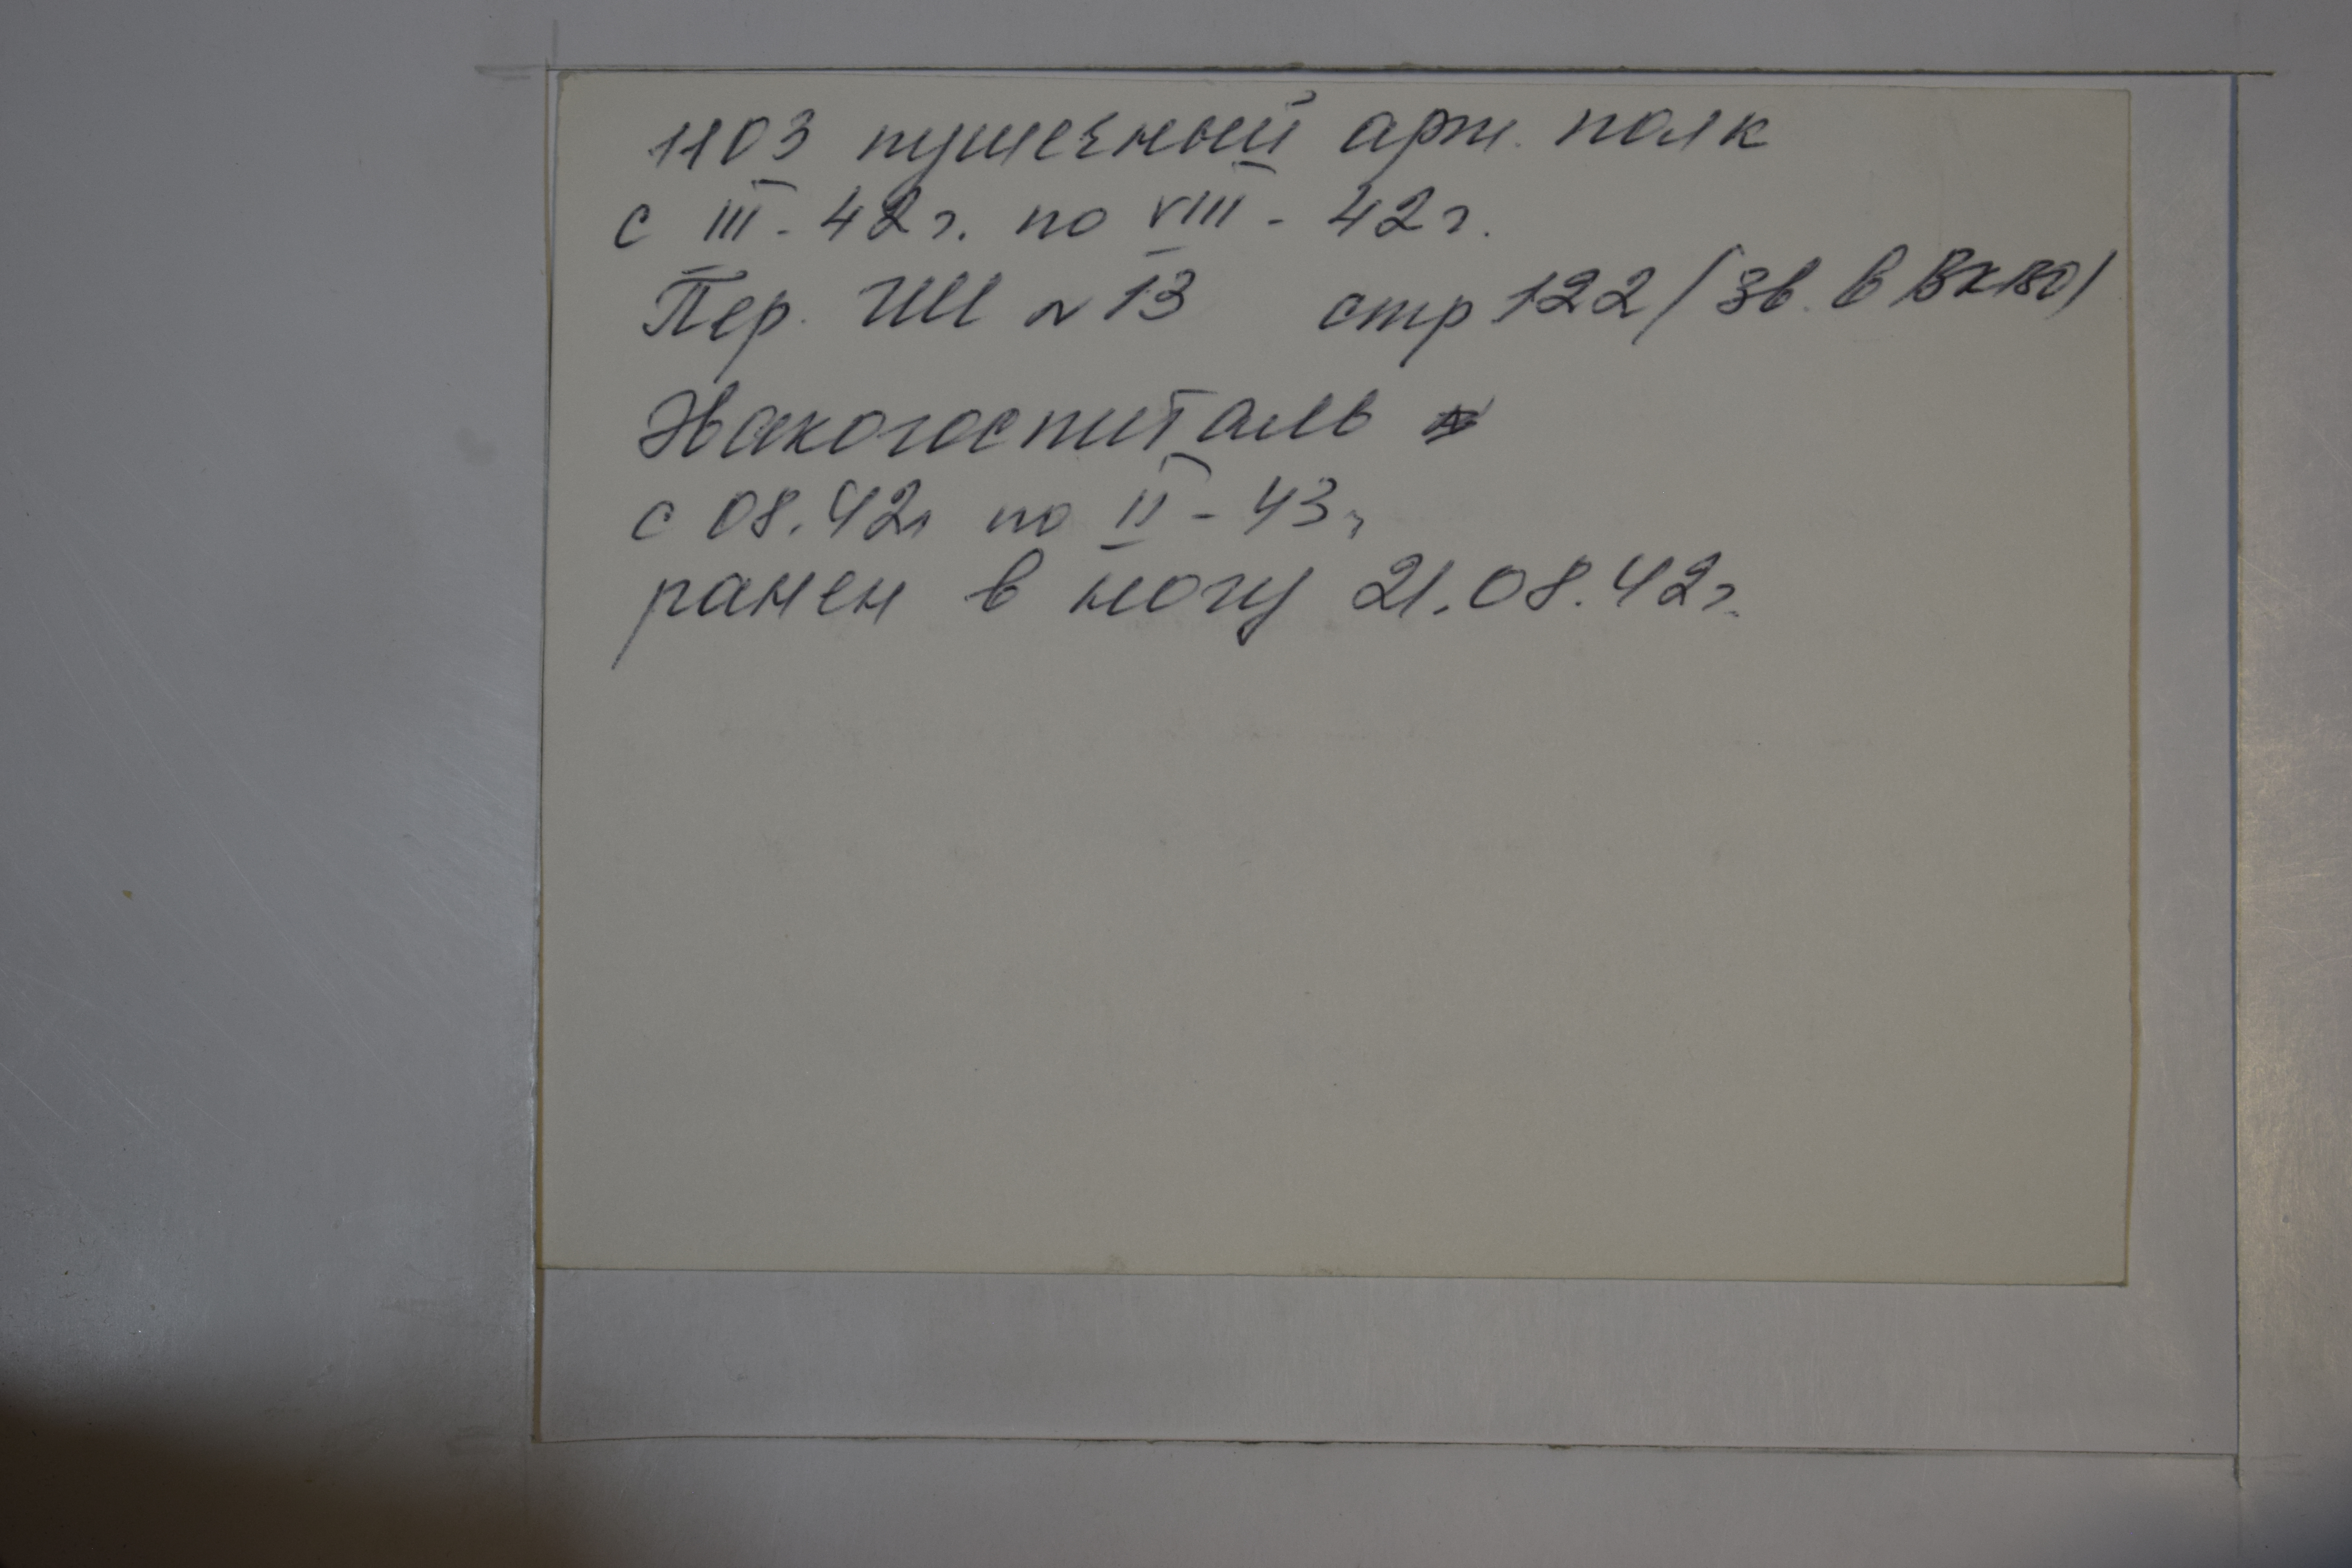 1103 пушечный арт. полк
с III - 42г. по VIII - 42г.
Пер. ГШ № 13 стр 122 / Зв. в
Эвакогоспиталь
с 08.42г по II - 43г
ранен в ногу 21.08.42г.